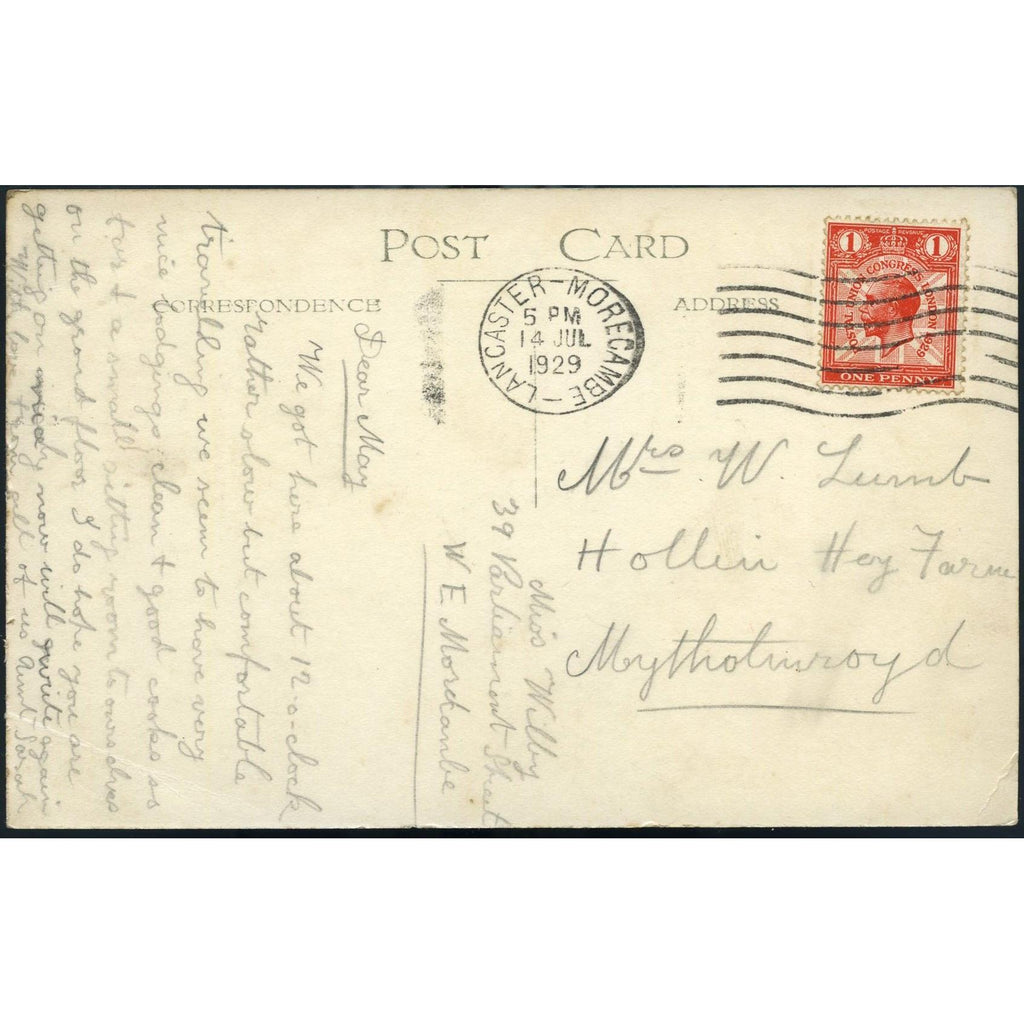 POST CARD
CORRESPONDENCE
ADDRESS
LANCASTER-MORECAMBE
5 PM
14 JUL
1929
POSTAGE REVENUE
1 1
POSTAL UNION CONGRESS LONDON 1929
ONE PENNY
Mrs W. Lumb
Hollin Hey Farm
Mytholmroyd
Miss Wilby
39 Parliament Street
W. E. Morchambe
Dear May
We got here about 12-o-clock
Rather slow but comfortable
travelling we seem to have very
nice lodgings clean & good cooks so
far & a small sitting room to ourselves
on the ground floor I do hope you are
getting on nicely now will write again
With love from all of us Aunt Sarah